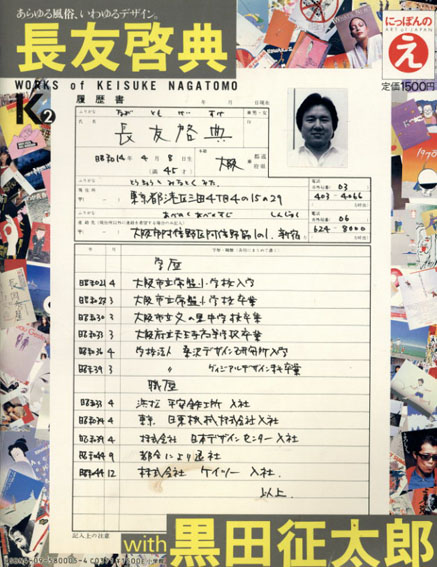 あらゆる風俗、いわゆるデザイン。
長友啓典
にっぽんの
ART of JAPAN
え
WORKS of KEISUKE NAGATOMO
定価1500円
K2
履歴書
年 月 日現在
ふりがな
氏名
長友啓典
男・女
昭和14年4月8日生
(満45才)
本籍
大阪
都道府県
ふりがな
現住所
東京都港区三田4丁目4の15の29
電話
03
403-4066
ふりがな
大阪市阿倍野区阿倍野筋1の1、新宿
電話
06
624-8000
年 月
学歴
昭和21 4 大阪市立常盤小学校入学
昭和28 3 大阪市立常盤小学校卒業
昭和30 3 大阪市立文の里中学校卒業
昭和33 3 大阪府立天王寺高等学校卒業
昭和36 4 学校法人 桑沢デザイン研究所入学
昭和39 3 〃 ヴィジアルデザイン科卒業
職歴
昭和33 4 浜松 平安鉄工所 入社
昭和34 4 東京 日東機械株式会社入社
昭和39 4 株式会社 日本デザインセンター入社
昭和44 9 都合により退社
昭和44 12 株式会社 ケイツー 入社.
以上.
記入上の注意
with 黒田征太郎